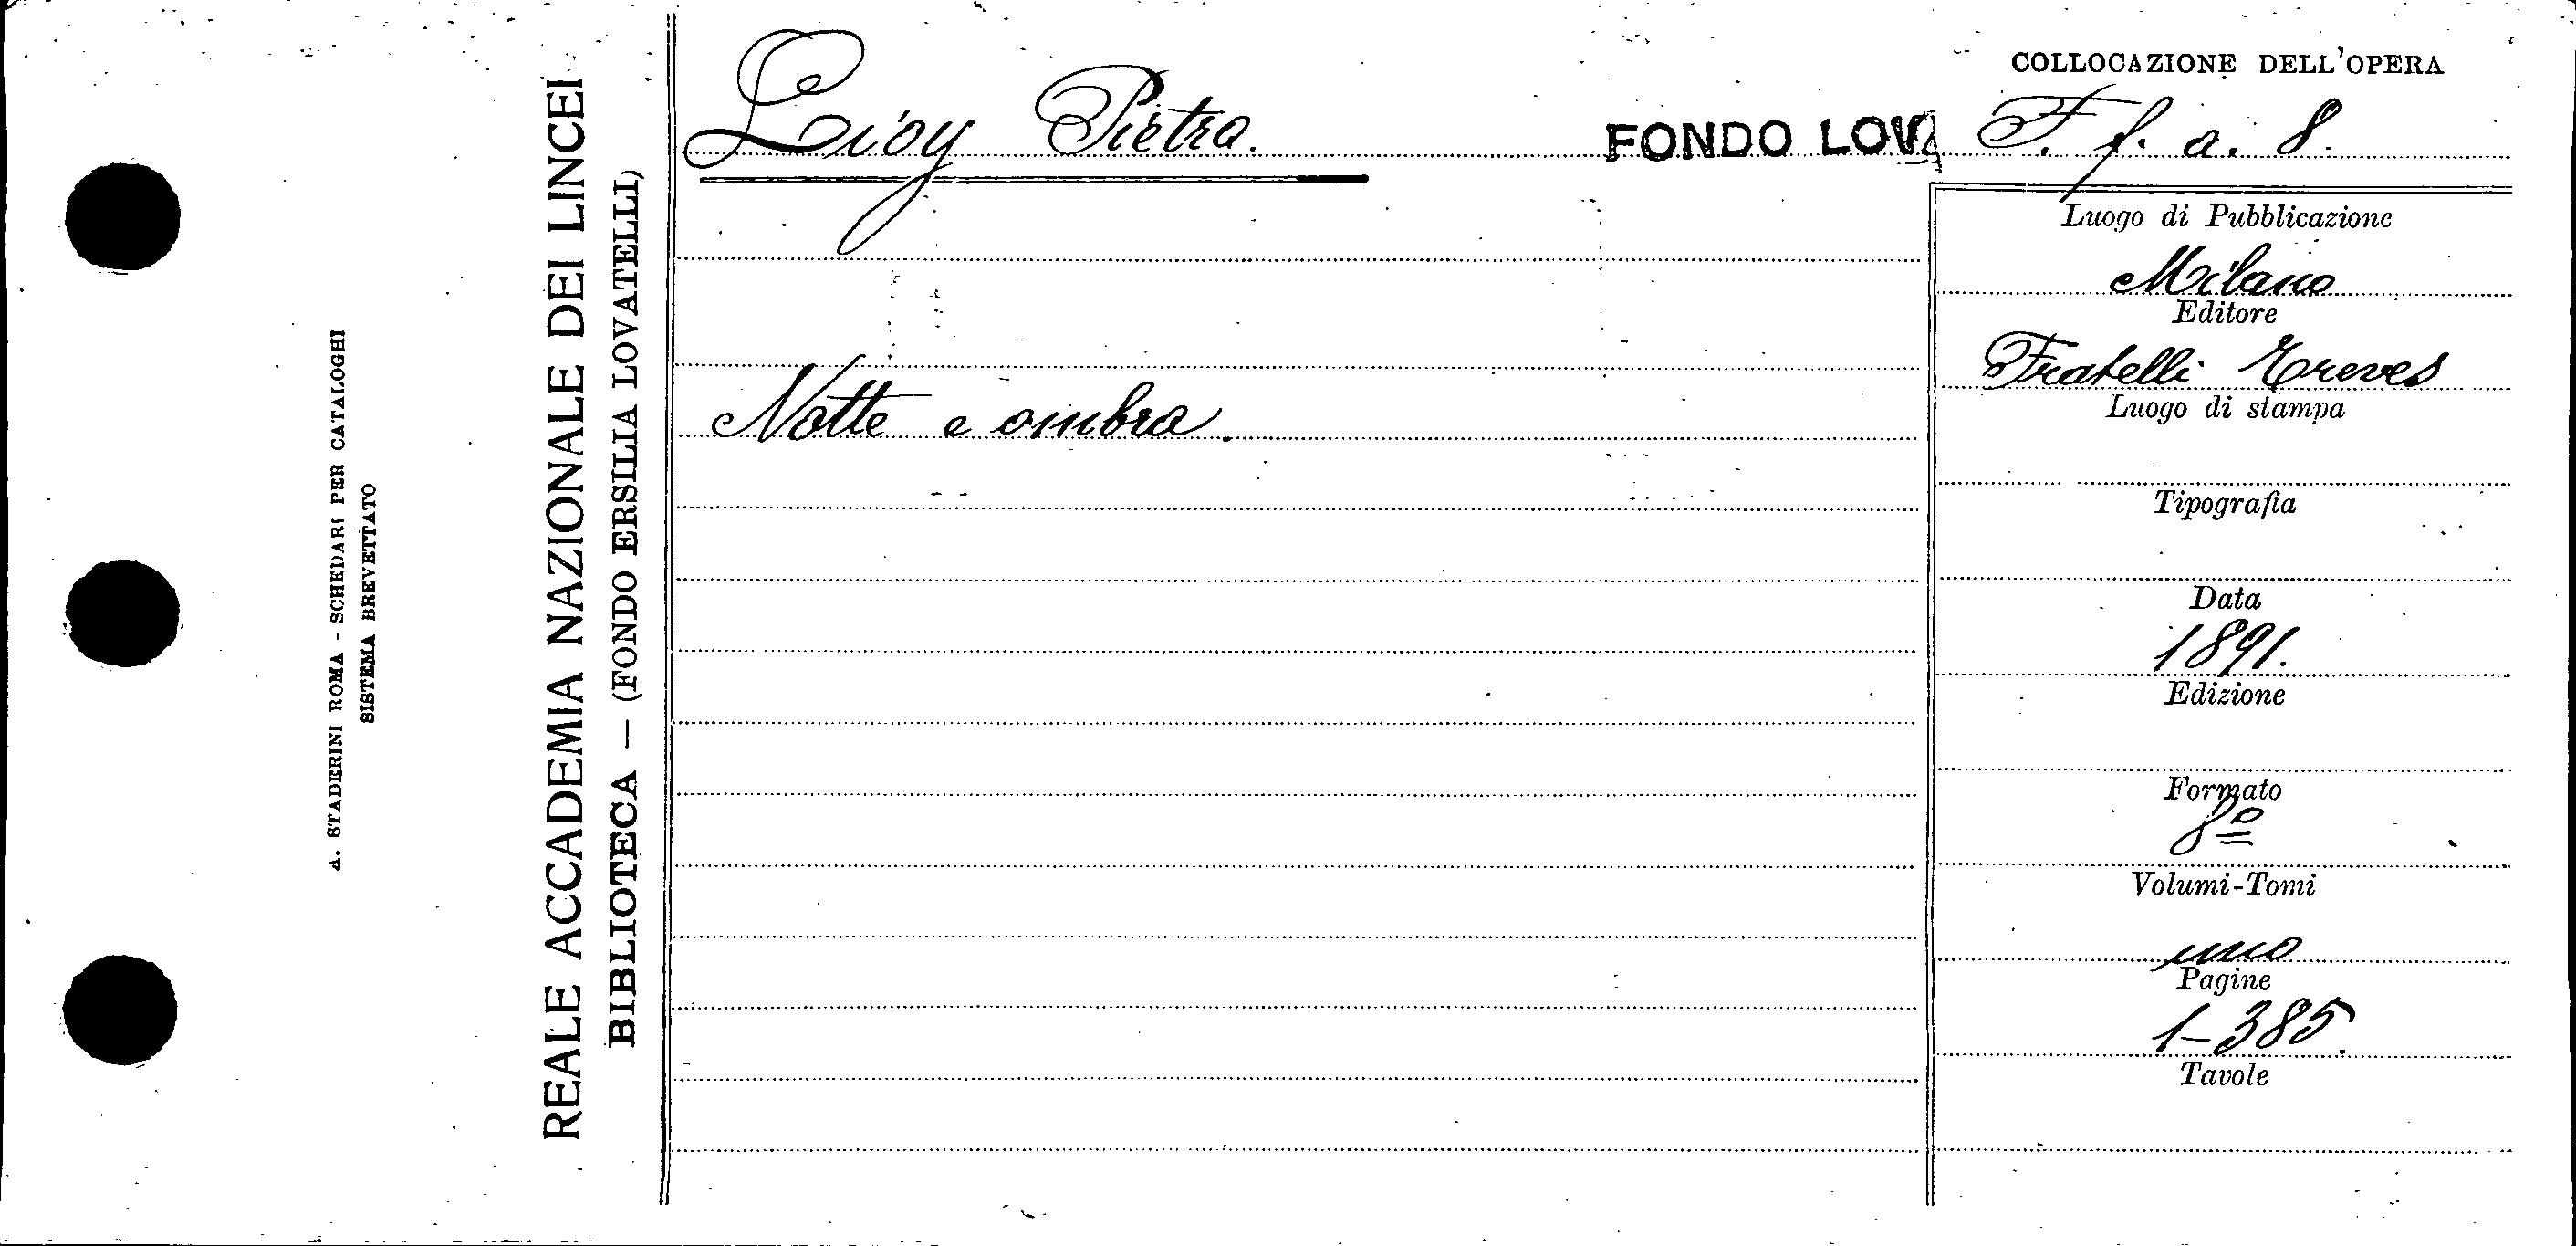 A. STADERINI ROMA - SCHEDARI PER CATALOGHI
SISTEMA BREVETTATO
REALE ACCADEMIA NAZIONALE DEI LINCEI
BIBLIOTECA — (FONDO ERSILIA LOVATELLI)
Lioy Pietra.
FONDO LOVA
Notte e ombra.
COLLOCAZIONE DELL'OPERA
F. f. a. 8.
Luogo di Pubblicazione
Milano
Editore
Fratelli Treves
Luogo di stampa
Tipografia
Data
1891.
Edizione
Formato
8º
Volumi-Tomi
uno
Pagine
1-385.
Tavole